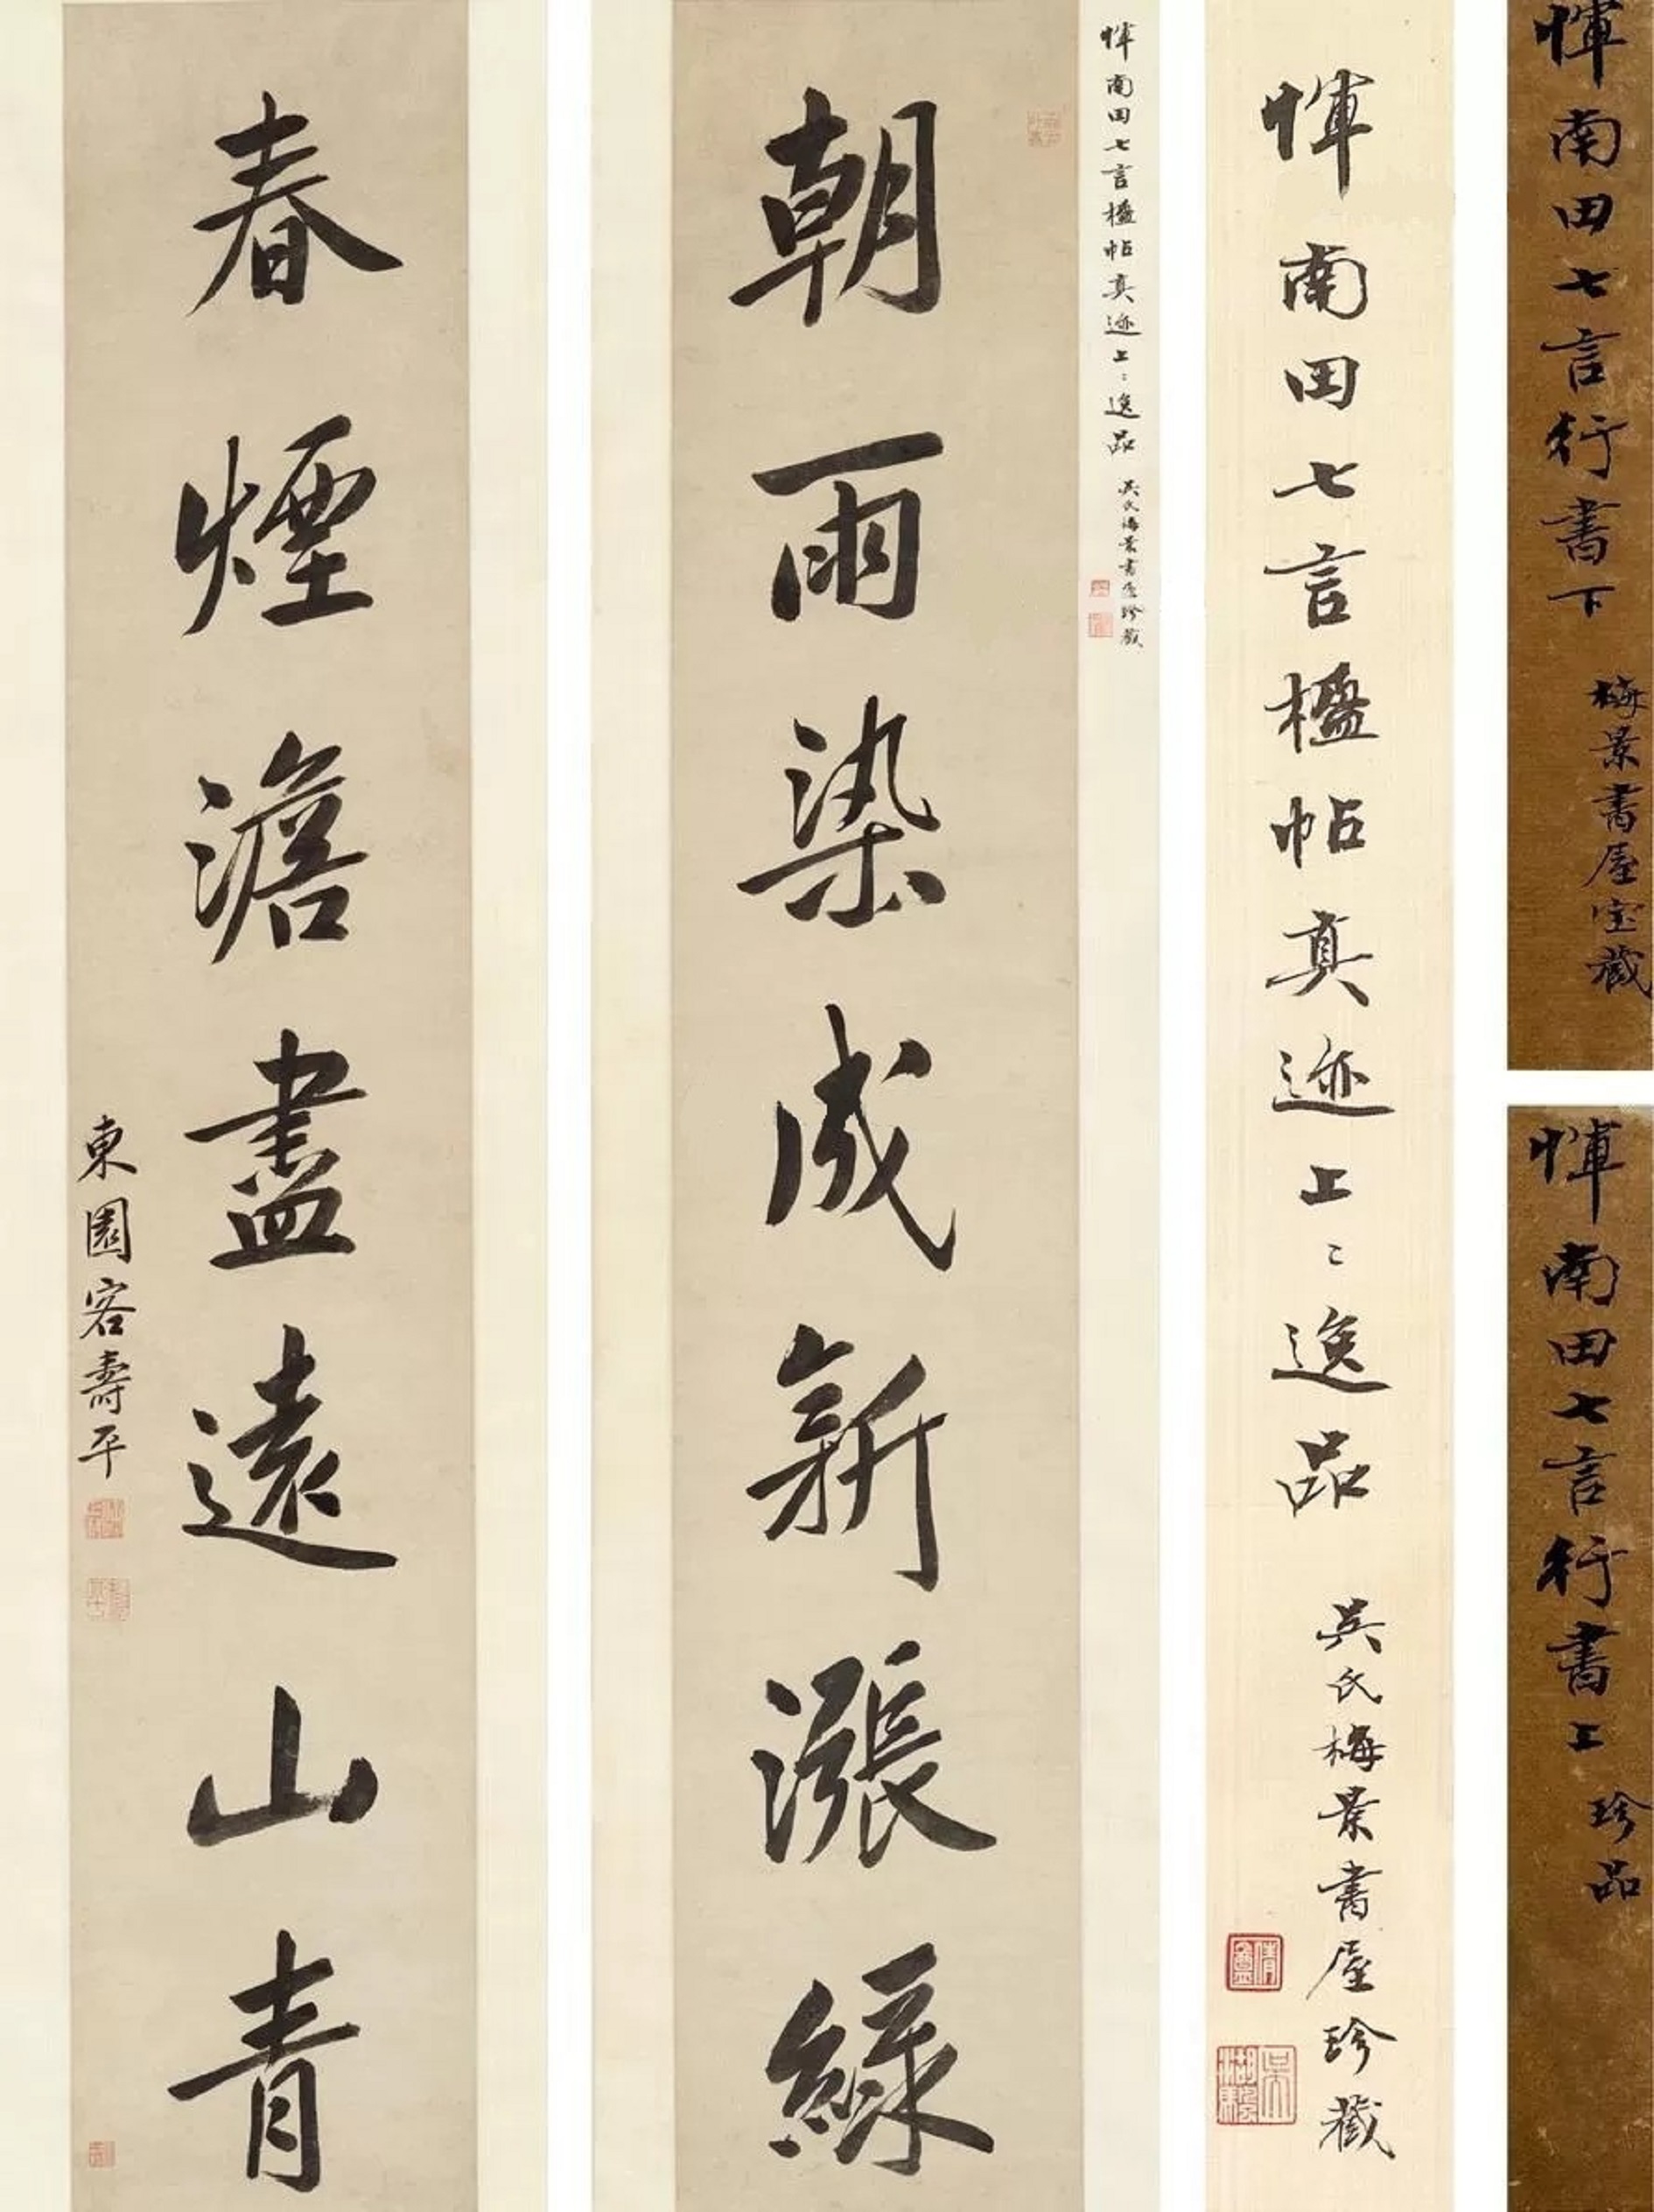 惲南田七言行書下
梅景書屋宝藏
惲南田七言行書上
珍品
惲南田七言楹帖真迹上〻逸品
吳氏梅景書屋珍藏
惲南田七言楹帖真迹上〻逸品
吳氏梅景書屋珍藏
朝雨染成新漲綠
春煙澹盡遠山青
東園客壽平